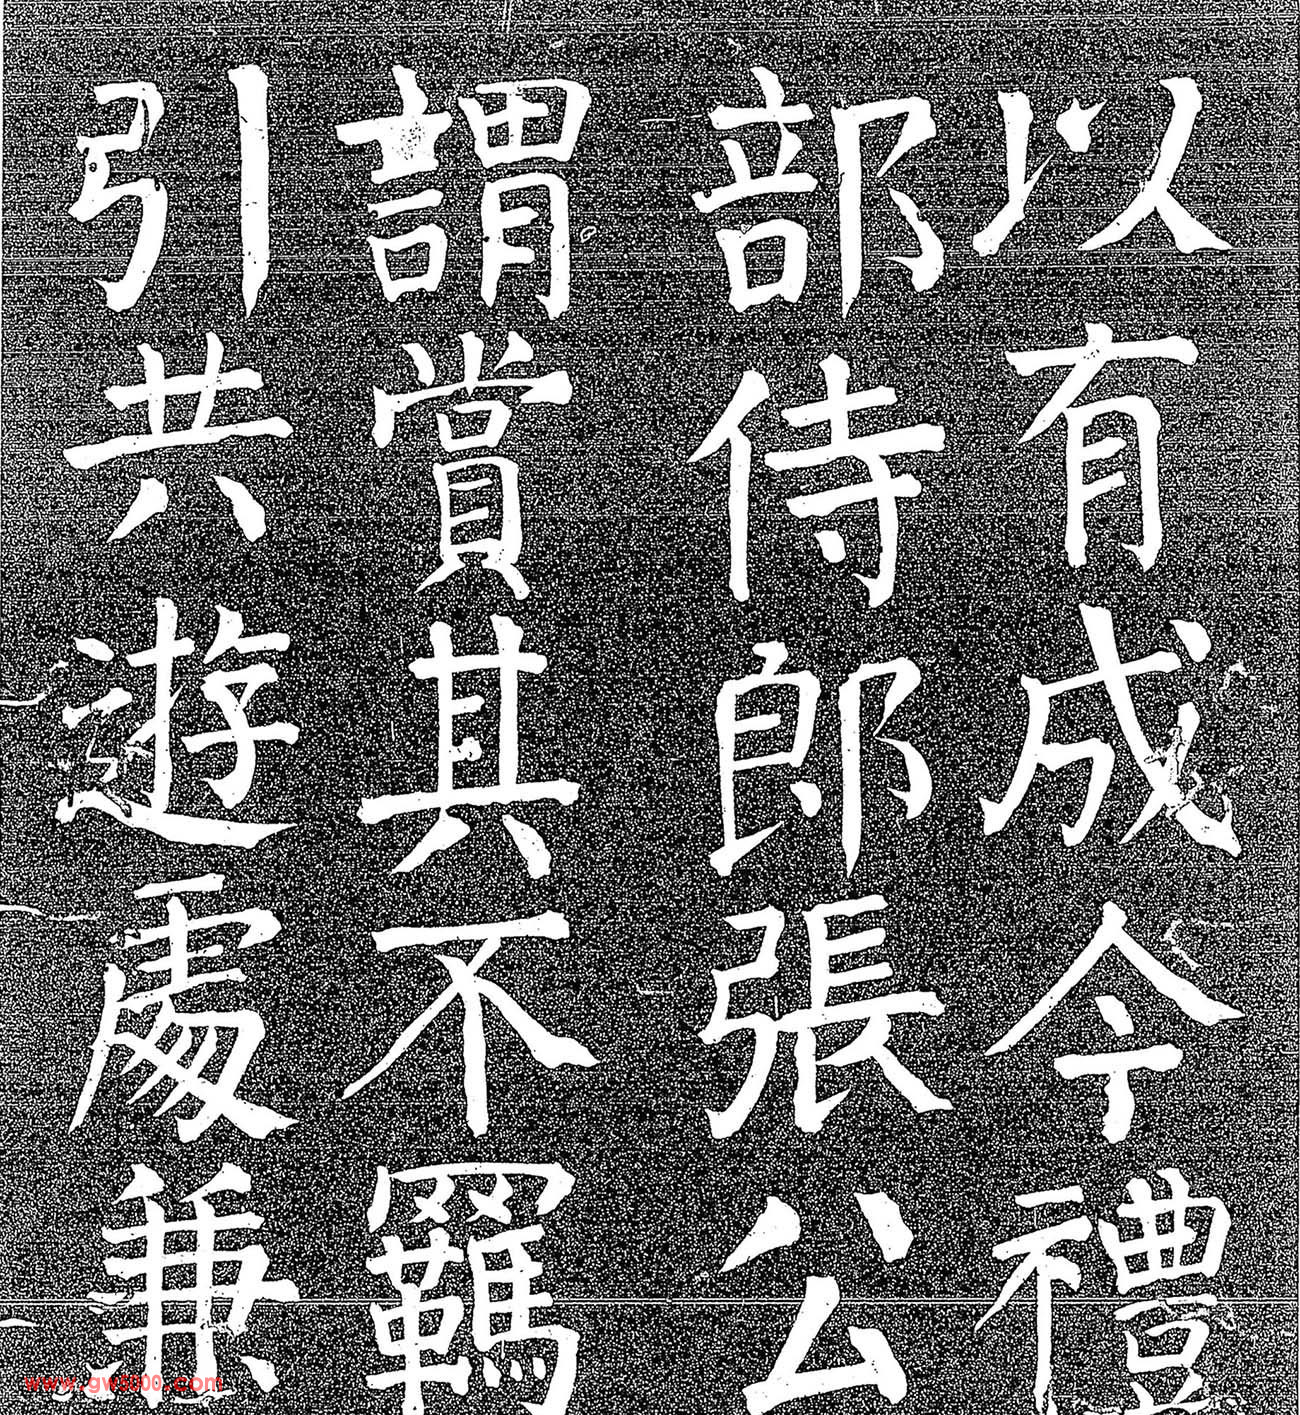 以有成今禮
部侍郎張公
謂賞其不羈
引共遊處兼
www.gw5000.com